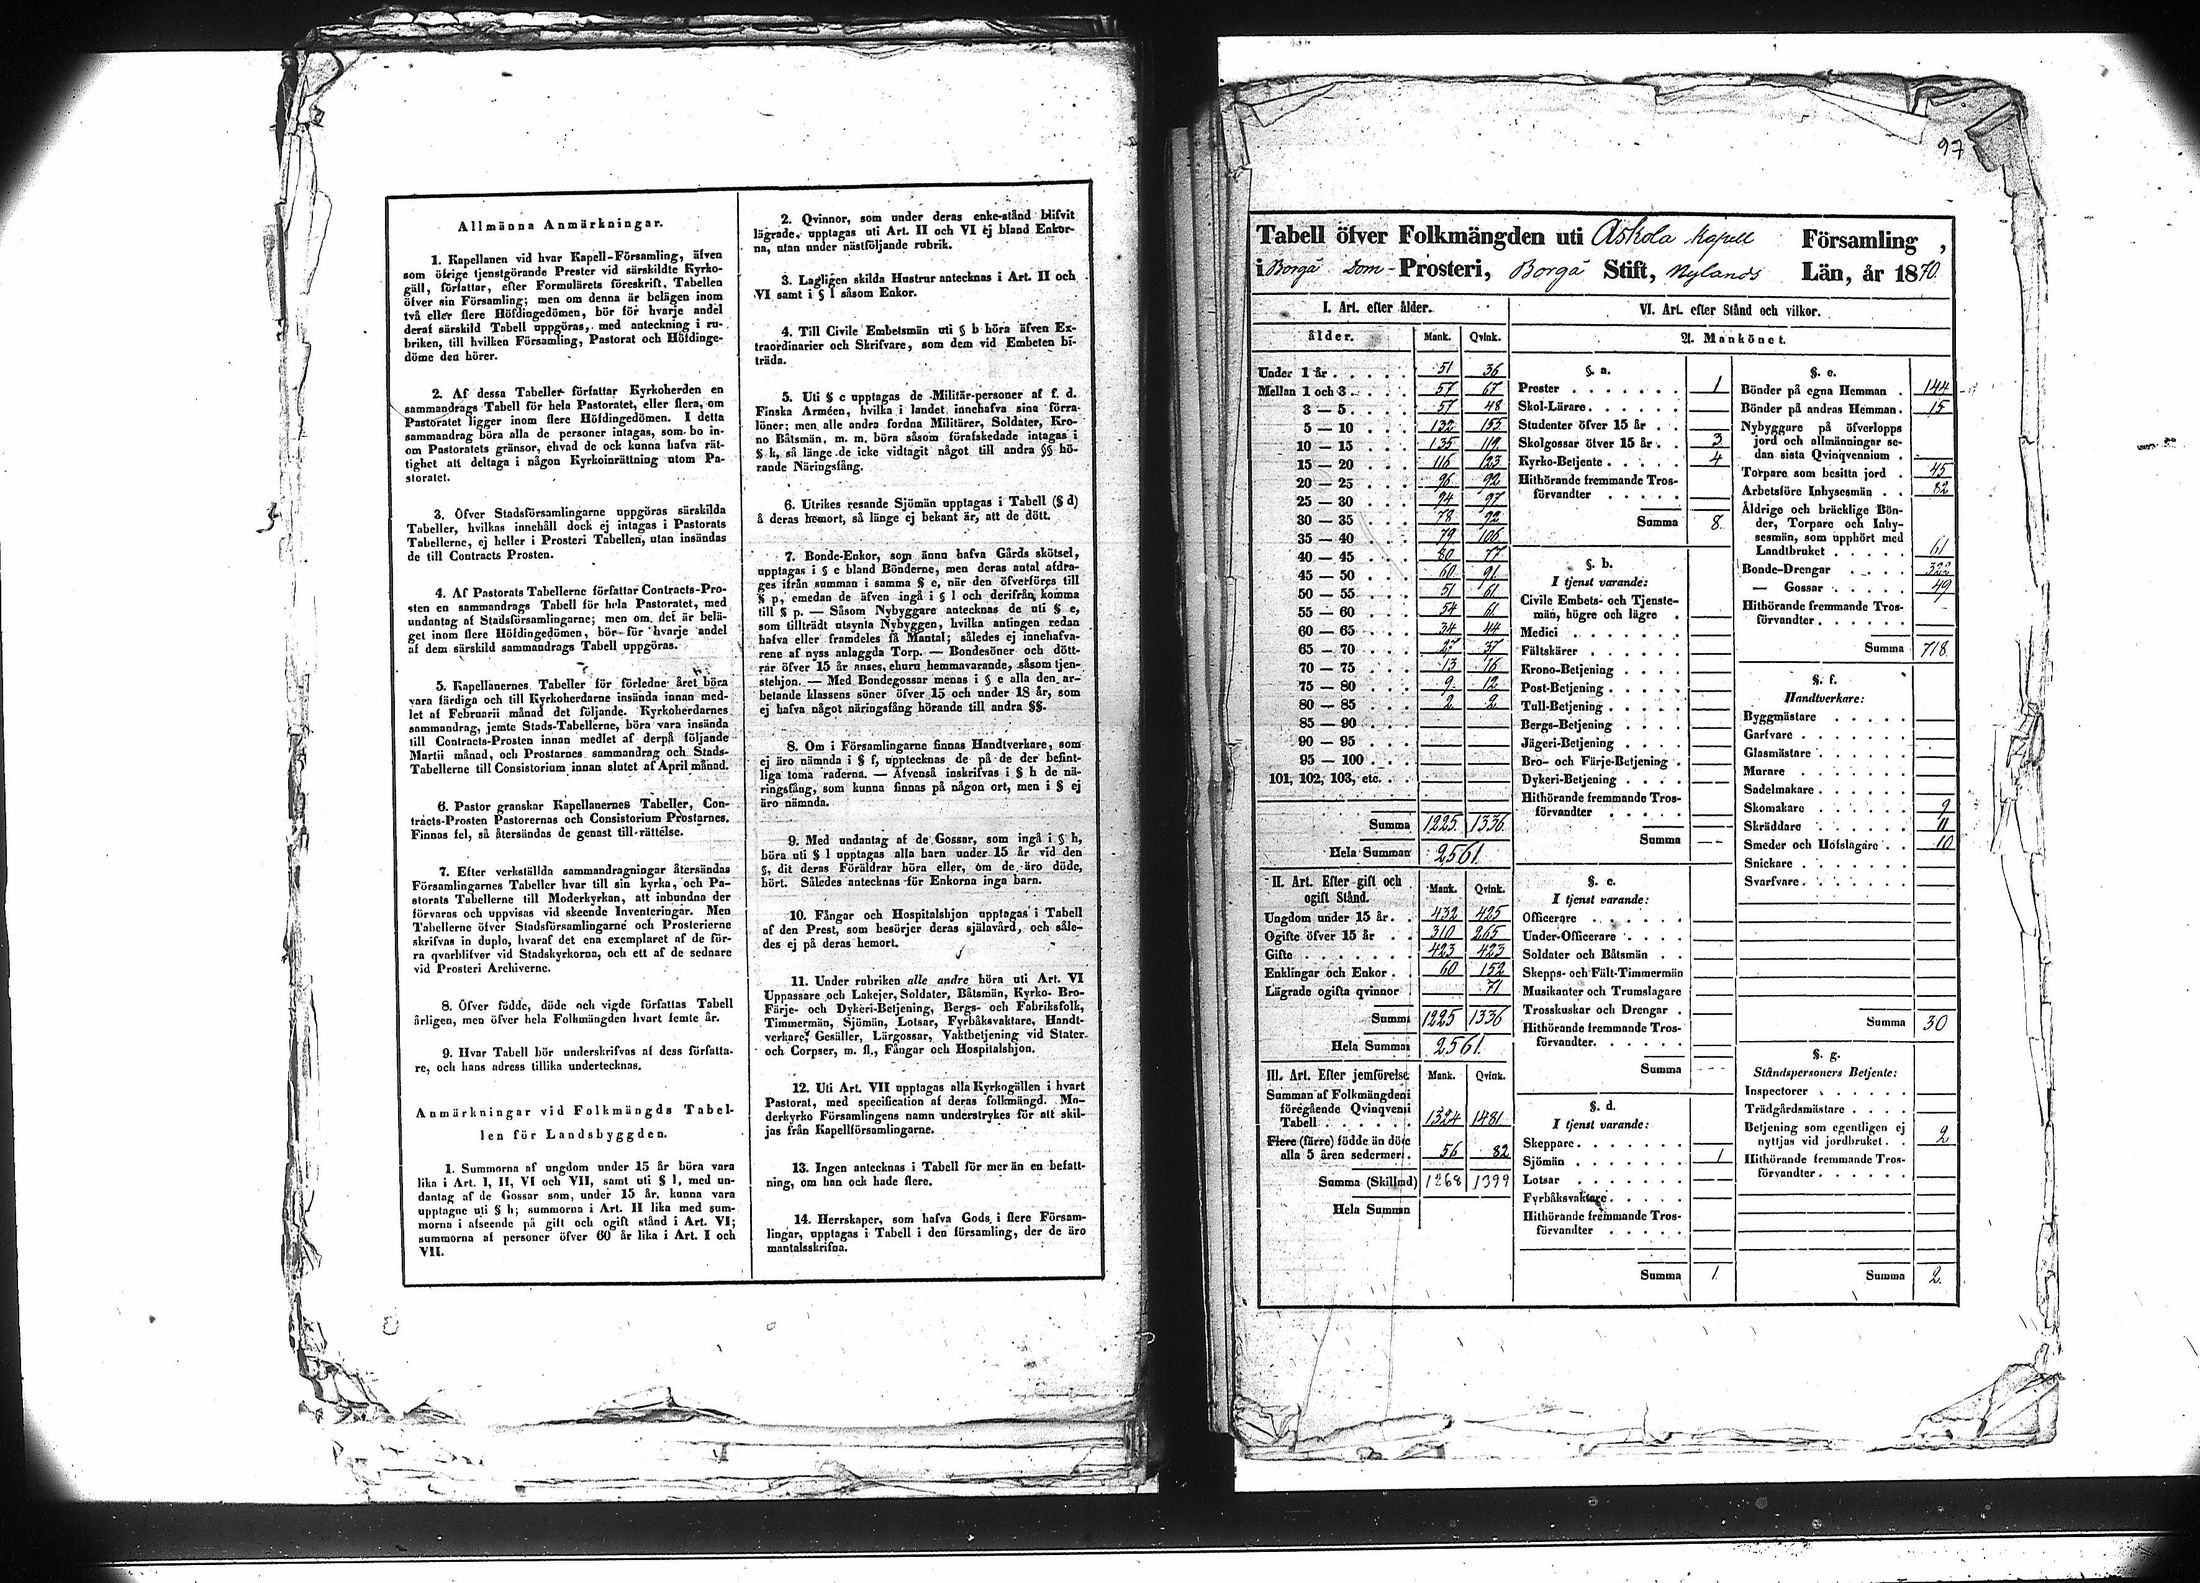 Allmänna Anmärkningar.
1. Kapellanen vid hvar Kapell-Församling, äfven
som öfrige tjenstgörande Prester vid särskildte Kyrko-
gäll, författar, efter Formulärets föreskrift, Tabellen
öfver sin Församling; men om denna är belägen inom
två eller flere Höfdingedömen, bör för hvarje andel
deraf särskild Tabell uppgöras, med anteckning i ru-
briken, till hvilken Församling, Pastorat och Höfdinge-
döme den hörer.
2. Af dessa Tabeller författar Kyrkoherden en
sammandrags Tabell för hela Pastoratet, eller flera, om
Pastoratet ligger inom flere Höfdingedömen. I detta
sammandrag böra alla de personer intagas, som bo in-
om Pastoratets gränsor, ehvad de ock kunna hafva rät-
tighet att deltaga i någon Kyrkoinrättning utom Pa-
storatet.
3. Öfver Stadsförsamlingarne uppgöras särskilda
Tabeller, hvilkas innehåll dock ej intages i Pastorats
Tabellerne, ej heller i Prosteri Tabellen, utan insändas
de till Contracts Prosten.
4. Af Pastorats Tabellerne författar Contracts-Pro-
sten en sammandrags Tabell för hela Pastoratet, med
undantag af Stadsförsamlingarne; men om det är belä-
get inom flere Höfdingedömen, bör för hvarje andel
af dem särskild sammandrags Tabell uppgöras.
5. Kapellanernes Tabeller för förledne året böra
vara färdiga och till Kyrkoherdarne insända innan med-
let af Februarii månad det följande. Kyrkoherdarnes
sammandrag, jemte Stads-Tabellerne, böra vara insända
till Contracts-Prosten innan medlet af derpå följande
Martii månad, och Prostarnes sammandrag och Stads-
Tabellerne till Consistorium innan slutet af April månad.
6. Pastor granskar Kapellanernes Tabeller, Con-
tracts-Prosten Pastorernas och Consistorium Prostarnes.
Finnas fel, så återsändas de genast till rättelse.
7. Efter verkställda sammandragningar återsändas
Församlingarnes Tabeller hvar till sin kyrka, och Pa-
storats Tabellerne till Moderkyrkan, att inbundna der
förvaras och uppvisas vid skeende Inventeringar. Men
Tabellerne öfver Stadsförsamlingarne och Prosterierne
skrifvas in duplo, hvaraf det ena exemplaret af de för-
ra qvarblifver vid Stadskyrkorna, och ett af de sednare
vid Prosteri Archiverne.
8. Öfver födde, döde och vigde författas Tabell
årligen, men öfver hela Folkmängden hvart femte år.
9. Hvar Tabell bör underskrifvas af dess författa-
re, och hans adress tillika undertecknas.
Anmärkningar vid Folkmängds Tabel-
len för Landsbyggden.
1. Summorna af ungdom under 15 år böra vara
lika i Art. I, II, VI och VII, samt uti § l, med un-
dantag af de Gossar som, under 15 år, kunna vara
upptagne uti § h; summorna i Art. II lika med sum-
morna i afseende på gift och ogift stånd i Art. VI;
summorna af personer öfver 60 år lika i Art. I och
VII.
2. Qvinnor, som under deras enke-stånd blifvit
lägrade, upptagas uti Art. II och VI ej bland Enkor-
na, utan under nästföljande rubrik.
3. Lagligen skilda Hustrur antecknas i Art. II och
VI samt i § l såsom Enkor.
4. Till Civile Embetsmän uti § b höra äfven Ex-
traordinarier och Skrifvare, som dem vid Embeten bi-
träda.
5. Uti § c upptagas de Militär-personer af f. d.
Finska Arméen, hvilka i landet innehafva sina förra
löner; men alle andra fordna Militärer, Soldater, Kro-
no Båtsmän, m. m. böra såsom förafskedade intagas i
§ k, så länge de icke vidtagit något till andra §§ hö-
rande Näringsfång.
6. Utrikes resande Sjömän upptagas i Tabell (§ d)
å deras hemort, så länge ej bekant är, att de dött.
7. Bonde-Enkor, som ännu hafva Gårds skötsel,
upptagas i § e bland Bönderne, men deras antal afdra-
ges ifrån summan i samma § e, när den öfverföres till
§ p, emedan de äfven ingå i § l och derifrån komma
till § p. — Såsom Nybyggare antecknas de uti § e,
som tillträdt utsynta Nybyggen, hvilka antingen redan
hafva eller framdeles få Mantal; således ej innehafva-
rene af nyss anlaggda Torp. — Bondesöner och dött-
rar öfver 15 år anses, ehuru hemmavarande, såsom tjen-
stehjon. — Med Bondegossar menas i § e alla den ar-
betande klassens söner öfver 15 och under 18 år, som
ej hafva något näringsfång hörande till andra §§.
8. Om i Församlingarne finnas Handtverkare, som
ej äro nämnda i § f, upptecknas de på de der befint-
liga toma raderna. — Äfvenså inskrifvas i § h de nä-
ringsfång, som kunna finnas på någon ort, men i § ej
äro nämnda.
9. Med undantag af de Gossar, som ingå i § h,
böra uti § l upptagas alla barn under 15 år vid den
§, dit deras Föräldrar höra eller, om de äro döde,
hört. Således antecknas för Enkorna inga barn.
10. Fångar och Hospitalshjon upptagas i Tabell
af den Prest, som besörjer deras själavård, och såle-
des ej på deras hemort.
11. Under rubriken alle andre höra uti Art. VI
Uppassare och Lakejer, Soldater, Båtsmän, Kyrko- Bro-
Färje- och Dykeri-Betjening, Bergs- och Fabriksfolk,
Timmermän, Sjömän, Lotsar, Fyrbåksvaktare, Handt-
verkare, Gesäller, Lärgossar, Vaktbetjening vid Stater
och Corpser, m. fl., Fångar och Hospitalshjon.
12. Uti Art. VII upptagas alla Kyrkogällen i hvart
Pastorat, med specification af deras folkmängd. Mo-
derkyrko Församlingens namn understrykes för att skil-
jas från Kapellförsamlingarne.
13. Ingen antecknas i Tabell för mer än en befatt-
ning, om han ock hade flere.
14. Herrskaper, som hafva Gods i flere Försam-
lingar, upptagas i Tabell i den församling, der de äro
mantalsskrifna.
97
Tabell öfver Folkmängden uti Askola kapell Församling,
i Borgå Dom-Prosteri, Borgå Stift, Nylands Län, år 1870.
I. Art. efter ålder.
ålder. Mank. Qvink.
Under 1 år 51 36
Mellan 1 och 3 57 67
3 — 5 57 48
5 — 10 132 155
10 — 15 135 119
15 — 20 116 123
20 — 25 96 92
25 — 30 94 97
30 — 35 78 92
35 — 40 79 106
40 — 45 80 77
45 — 50 60 91
50 — 55 51 61
55 — 60 54 61
60 — 65 34 44
65 — 70 27 37
70 — 75 13 16
75 — 80 9 12
80 — 85 2 2
85 — 90
90 — 95
95 — 100
101, 102, 103, etc.
Summa 1225 1336
Hela Summan 2561
II. Art. Efter gift och ogift Stånd. Mank. Qvink.
Ungdom under 15 år 432 425
Ogifte öfver 15 år 310 265
Gifte 423 423
Enklingar och Enkor 60 152
Lägrade ogifta qvinnor 71
Summa 1225 1336
Hela Summan 2561
III. Art. Efter jemförelse Mank. Qvink.
Summan af Folkmängden i
föregående Qvinqvenii
Tabell 1324 1481
Flere (färre) födde än döde
alla 5 åren sedermera 56 82
Summa (Skillnad) 1268 1399
Hela Summan
VI. Art. efter Stånd och vilkor.
A. Mankönet.
§. a.
Prester 1
Skol-Lärare
Studenter öfver 15 år
Skolgossar öfver 15 år 3
Kyrko-Betjente 4
Hithörande fremmande Tros-
förvandter
Summa 8
§. b.
I tjenst varande:
Civile Embets- och Tjenste-
män, högre och lägre
Medici
Fältskärer
Krono-Betjening
Post-Betjening
Tull-Betjening
Bergs-Betjening
Jägeri-Betjening
Bro- och Färje-Betjening
Dykeri-Betjening
Hithörande fremmande Tros-
förvandter
Summa --
§. c.
I tjenst varande:
Officerare
Under-Officerare
Soldater och Båtsmän
Skepps- och Fält-Timmermän
Musikanter och Trumslagare
Trosskuskar och Drengar
Hithörande fremmande Tros-
förvandter.
Summa ---
§. d.
I tjenst varande:
Skeppare
Sjömän 1
Lotsar
Fyrbåksvaktare
Hithörande fremmande Tros-
förvandter
Summa 1
§. e.
Bönder på egna Hemman 144
Bönder på andras Hemman 15
Nybyggare på öfverlopps
jord och allmänningar se-
dan sista Qvinqvennium
Torpare som besitta jord 45
Arbetsföre Inhysesmän 82
Åldrige och bräcklige Bön-
der, Torpare och Inhy-
sesmän, som upphört med
Landtbruket 61
Bonde-Drengar 322
— Gossar 49
Hithörande fremmande Tros-
förvandter
Summa 718
§. f.
Handtverkare:
Byggmästare
Garfvare
Glasmästare
Murare
Sadelmakare
Skomakare 9
Skräddare 11
Smeder och Hofslagare 10
Snickare
Svarfvare
Summa 30
§. g.
Ståndspersoners Betjente:
Inspectorer
Trädgårdsmästare
Betjening som egentligen ej
nyttjas vid jordbruket 2
Hithörande fremmande Tros-
förvandter
Summa 2